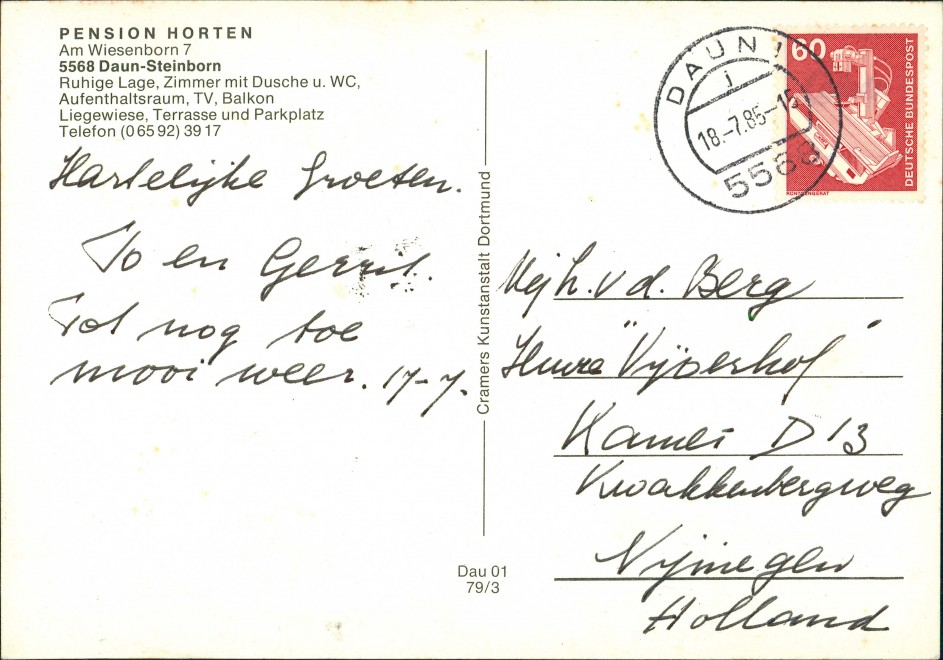 PENSION HORTEN
Am Wiesenborn 7
5568 Daun-Steinborn
Ruhige Lage, Zimmer mit Dusche u. WC,
Aufenthaltsraum, TV, Balkon
Liegewiese, Terrasse und Parkplatz
Telefon (0 65 92) 39 17
Hartelijke Groeten.
To en Gerrit.
Tot nog toe
mooi weer. 17-7.
Cramers Kunstanstalt Dortmund
Dau 01
79/3
DAUN 1
j
18.-7.85-15
5568
60
DEUTSCHE BUNDESPOST
RÖNTGENGERÄT
Mejh. v d. Berg
Huize "Vijverhof"
Kamer D 13
Kwakkenbergweg
Nijmegen
Holland